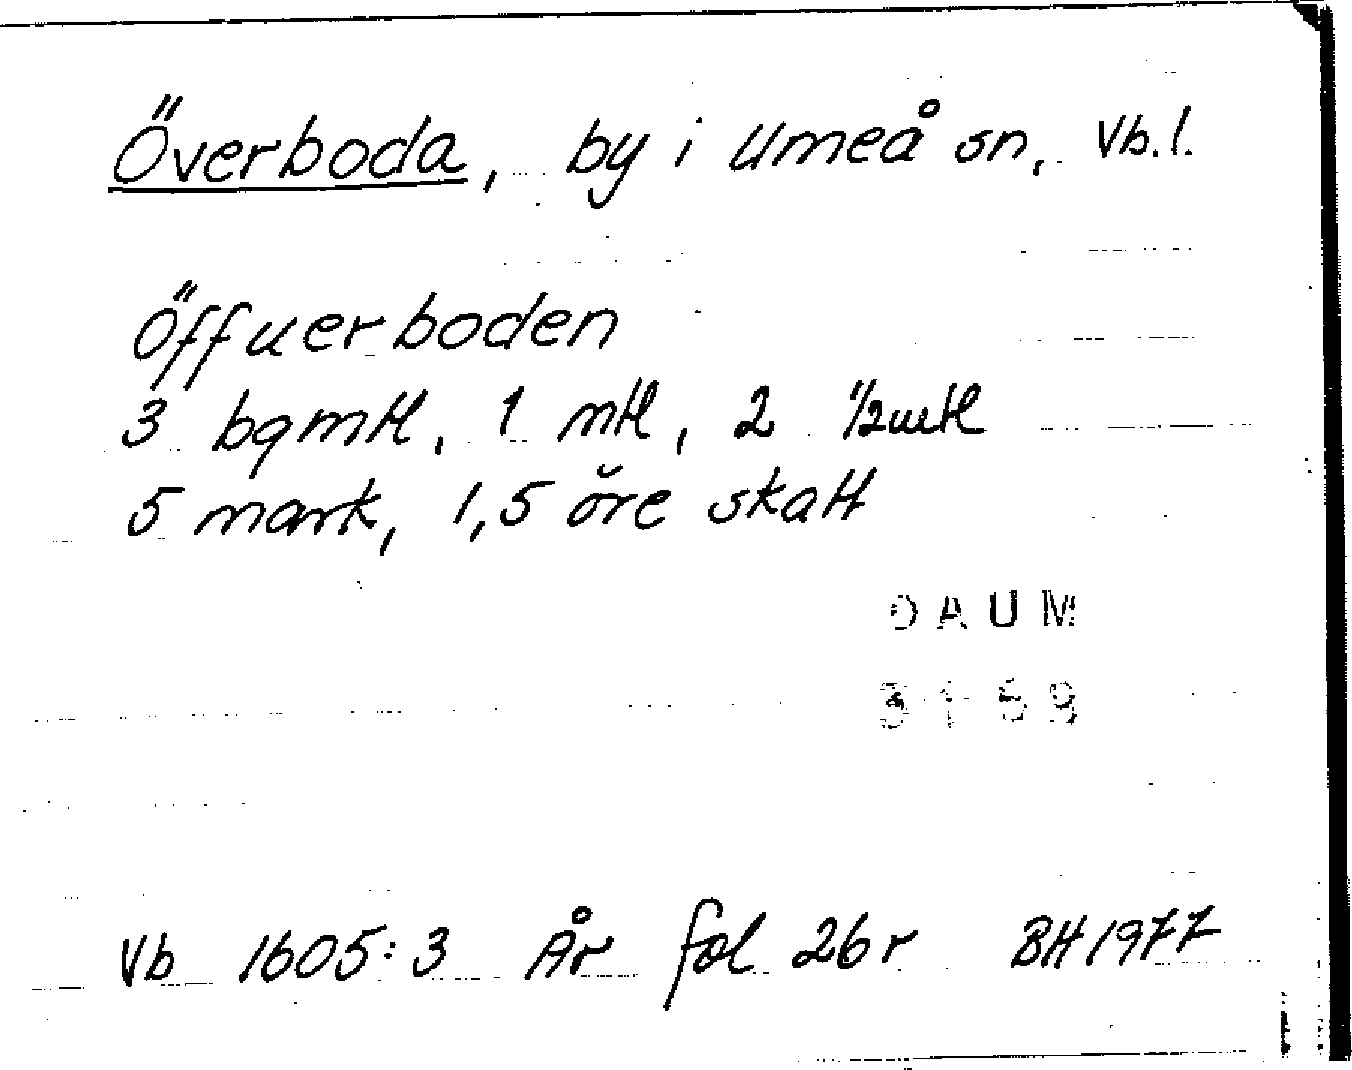 Överboda, by i Umeå sn, Vb.l.
Öffuerboden
3 bgmtl, 1 mtl, 2 1/2mtl
5 mark, 1,5 öre skatt
DAUM
3159
Vb 1605:3 År fol 26r BH 1977